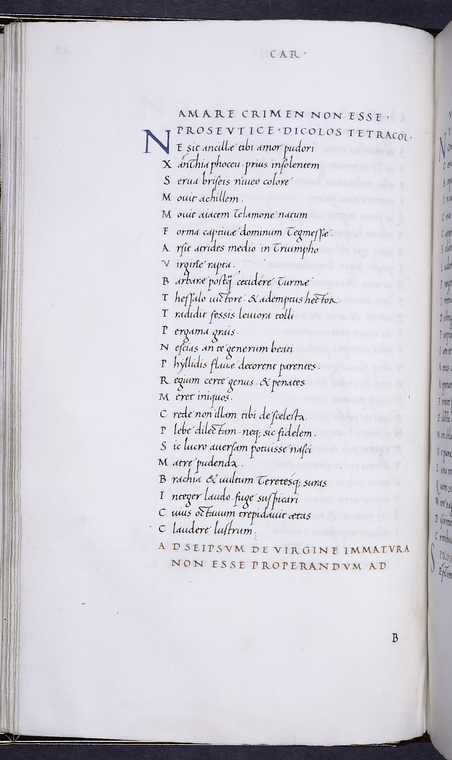 CAR·
AMARE CRIMEN NON ESSE·
PROSEVTICE·DICOLOS TETRACOL·
NE sit ancillę tibi amor pudori
Xanthia phoceu. prius insolentem
Serua briseis niueo colore
Mouit achillem.
Mouit aiacem telamone natum
Forma captiuę dominum tegmessę.
Arsit atrides medio in triumpho
Virgine rapta.
Barbarę postq̄ cecidere turmę
Thessalo uictore. & ademptus hector
Tradidit fessis leuiora tolli
Pergama grais.
Nescias an te generum beati
Phyllidis flauę decorent parentes.
Regium certe genus. & penates
Meret iniquos.
Crede non illam tibi de scelesta
Plebe dilectam. neq; sic fidelem.
Sic lucro auersam potuisse nasci
Matre pudenda.
Brachia & uultum teretesq; suras
Integer laudo. fuge suspicari
Cuius octauum trepidauit ætas
Claudere lustrum.
AD SEIPSVM DE VIRGINE IMMATVRA
NON ESSE PROPERANDVM AD
B